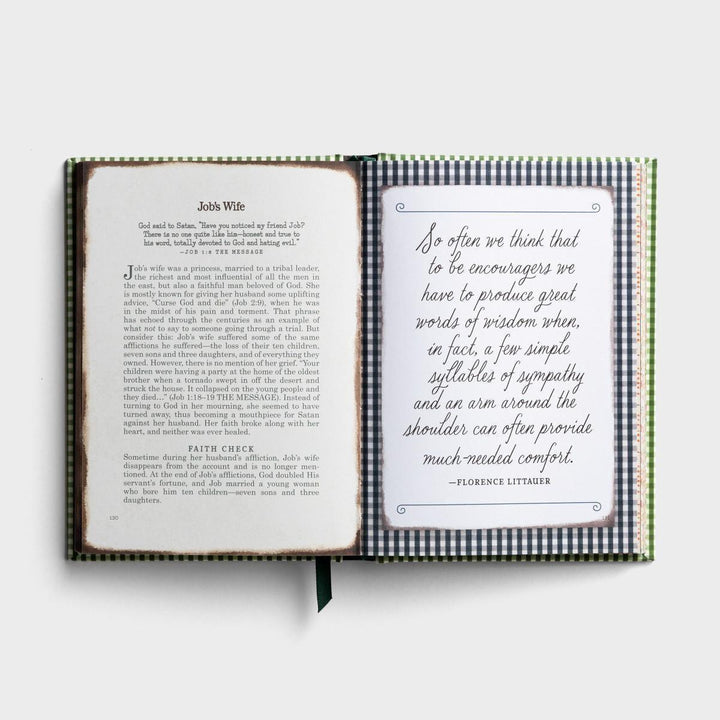 Job's Wife
God said to Satan, "Have you noticed my friend Job?
There is no one quite like him—honest and true to
his word, totally devoted to God and hating evil."
—JOB 1:8 THE MESSAGE
Job's wife was a princess, married to a tribal leader,
the richest and most influential of all the men in
the east, but also a faithful man beloved of God. She
is mostly known for giving her husband some uplifting
advice, "Curse God and die" (Job 2:9), when he was
in the midst of his pain and torment. That phrase
has echoed through the centuries as an example of
what not to say to someone going through a trial. But
consider this: Job's wife suffered some of the same
afflictions he suffered—the loss of their ten children,
seven sons and three daughters, and of everything they
owned. However, there is no mention of her grief. "Your
children were having a party at the home of the oldest
brother when a tornado swept in off the desert and
struck the house. It collapsed on the young people and
they died..." (Job 1:18–19 THE MESSAGE). Instead of
turning to God in her mourning, she seemed to have
turned away, thus becoming a mouthpiece for Satan
against her husband. Her faith broke along with her
heart, and neither was ever healed.
FAITH CHECK
Sometime during her husband's affliction, Job's wife
disappears from the account and is no longer men-
tioned. At the end of Job's afflictions, God doubled His
servant's fortune, and Job married a young woman
who bore him ten children—seven sons and three
daughters.
130
So often we think that
to be encouragers we
have to produce great
words of wisdom when,
in fact, a few simple
syllables of sympathy
and an arm around the
shoulder can often provide
much-needed comfort.
—FLORENCE LITTAUER